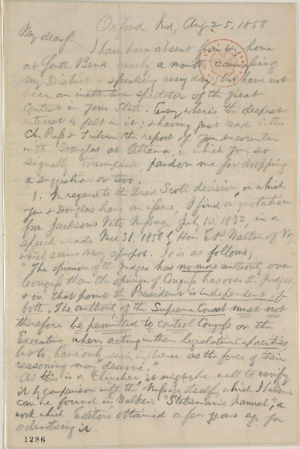 Oxford Ind, Aug 25, 1858
My dear Sir
I have been absent from my home
at South Bend nearly a month canvassing
my District & speaking every day; but have not
been an inattentive spectator of the great
contest in your State. Everywhere the deepest
interest is felt in it; & having just read in the
Ch. Press & Tribune the report of your encounter
with Douglas at Ottawa, in which you so
signally triumphed, pardon me for dropping
a suggestion or two.
1. In regard to the Dred Scott decision, on which
you & Douglas have an issue, I find a quotation
from Jackson's Veto Message July 10, 1832, in a
speech made Mch 31, 1858 by Hon. E P Walton of Vt,
which seems very apropos. It is as follows;
"The opinion of the Judges has no more authority over
Congress than the opinion of Congress has over the Judges,
& on that point the President is independent of
both. The authority of the Supreme Court must not
therefore be permitted to control Congress or the
Executive when acting in their legislative capacities
but to have only such influence as the force of their
reasoning may deserve.
As this is a clincher it might be well to verify
it by comparison with the Message itself, which I believe
can be found in Walker's "Statesman's Manual", a
work which Editors obtained a few years ago for
advertising it.
1286